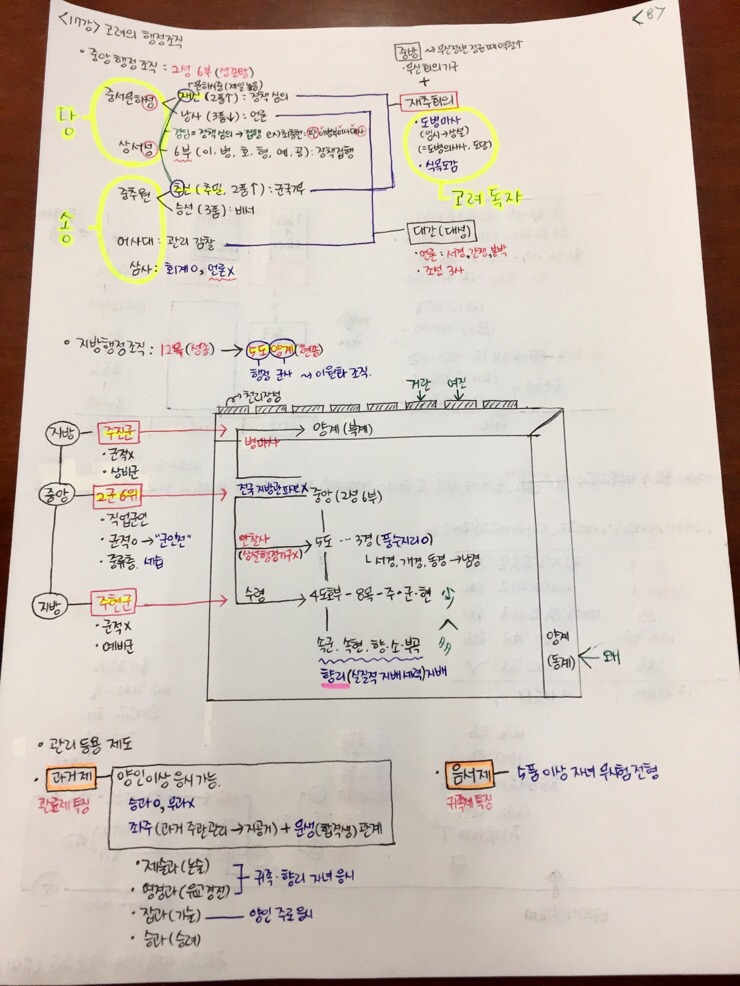 <17강> 고려의 행정조직
<8>
• 중앙 행정 조직 : 2성 6부 (성종완비)
당
중서문하성
재신 (2품↑) : 정책 심의
낭사 (3품↓) : 언론
상서성
6부 (이. 병. 호. 형. 예. 공) : 정책집행
송
중추원
추신 (추밀, 2품↑) : 군국기무
승선 (3품) : 비서
어사대 : 관리 감찰
삼사 : 회계O, 언론X
중방 ~ 무신정변 집권 때 역할↑
• 무신회의기구
+
재추회의
• 도병마사
(임시→상설)
(=도평의사사. 도당)
• 식목도감
고려 독자
대간 (대성)
• 언론 : 서경, 간쟁, 봉박
• 조선 3사
• 지방행정조직 : 12목 (성종) → 5도 양계 (현종)
행정 군사 ~ 이원화 조직.
천리장성
거란 여진
지방 주진군
• 군적X
• 상비군
중앙 2군 6위
• 직업군인
• 군적O → "군인전"
• 중류층. 세습
지방 주현군
• 군적X
• 예비군
병마사
양계 (북계)
전국 지방관 파견X
중앙 (2성 6부)
안찰사
(상설행정기구X)
5도 … 3경 (풍수지리O)
└ 서경, 개경, 동경 → 남경
수령
4도호부 - 8목 - 주 · 군 · 현 少
속군. 속현. 향 · 소 · 부곡 多
향리 (실질적 지배세력) 지배
양계
(동계) ← 왜
• 관리 등용 제도
• 과거제
관료제 특징
양인이상 응시 가능.
승과O, 무과X
좌주 (과거 주관관리 → 지공거) + 문생 (합격생) 관계
• 제술과 (논술)
• 명경과 (유교경전)
귀족 · 향리 자녀 응시
• 잡과 (기술) — 양인 주로 응시
• 승과 (승려)
• 음서제 — 5품 이상 자녀 무시험 전형
귀족제 특징